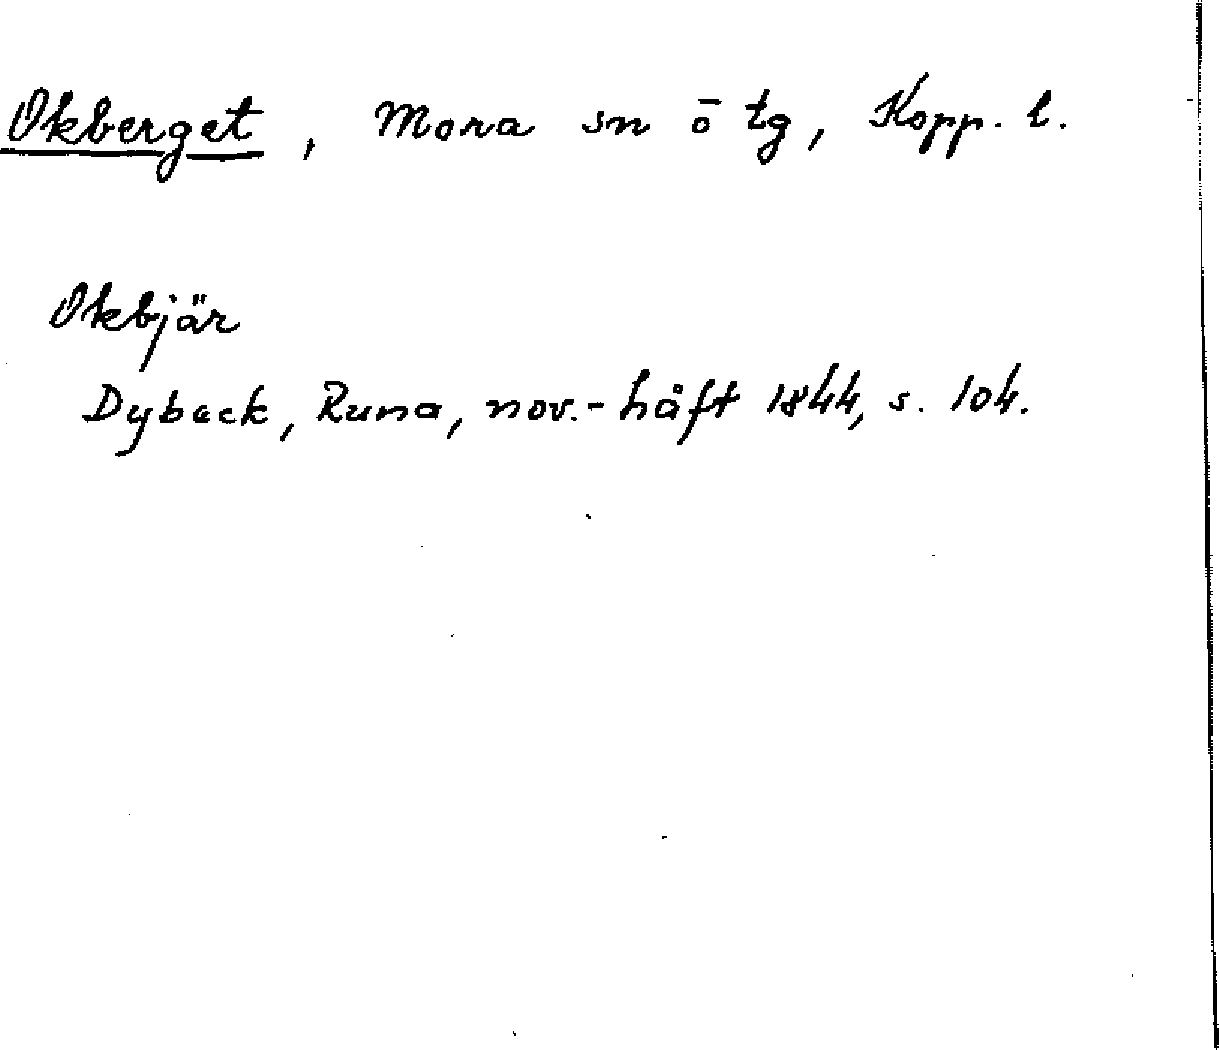 Okberget, Mora sn o tg, Kopp. l.
Okbjär
Dybeck, Runa, nov.-häft 1844, s. 104.